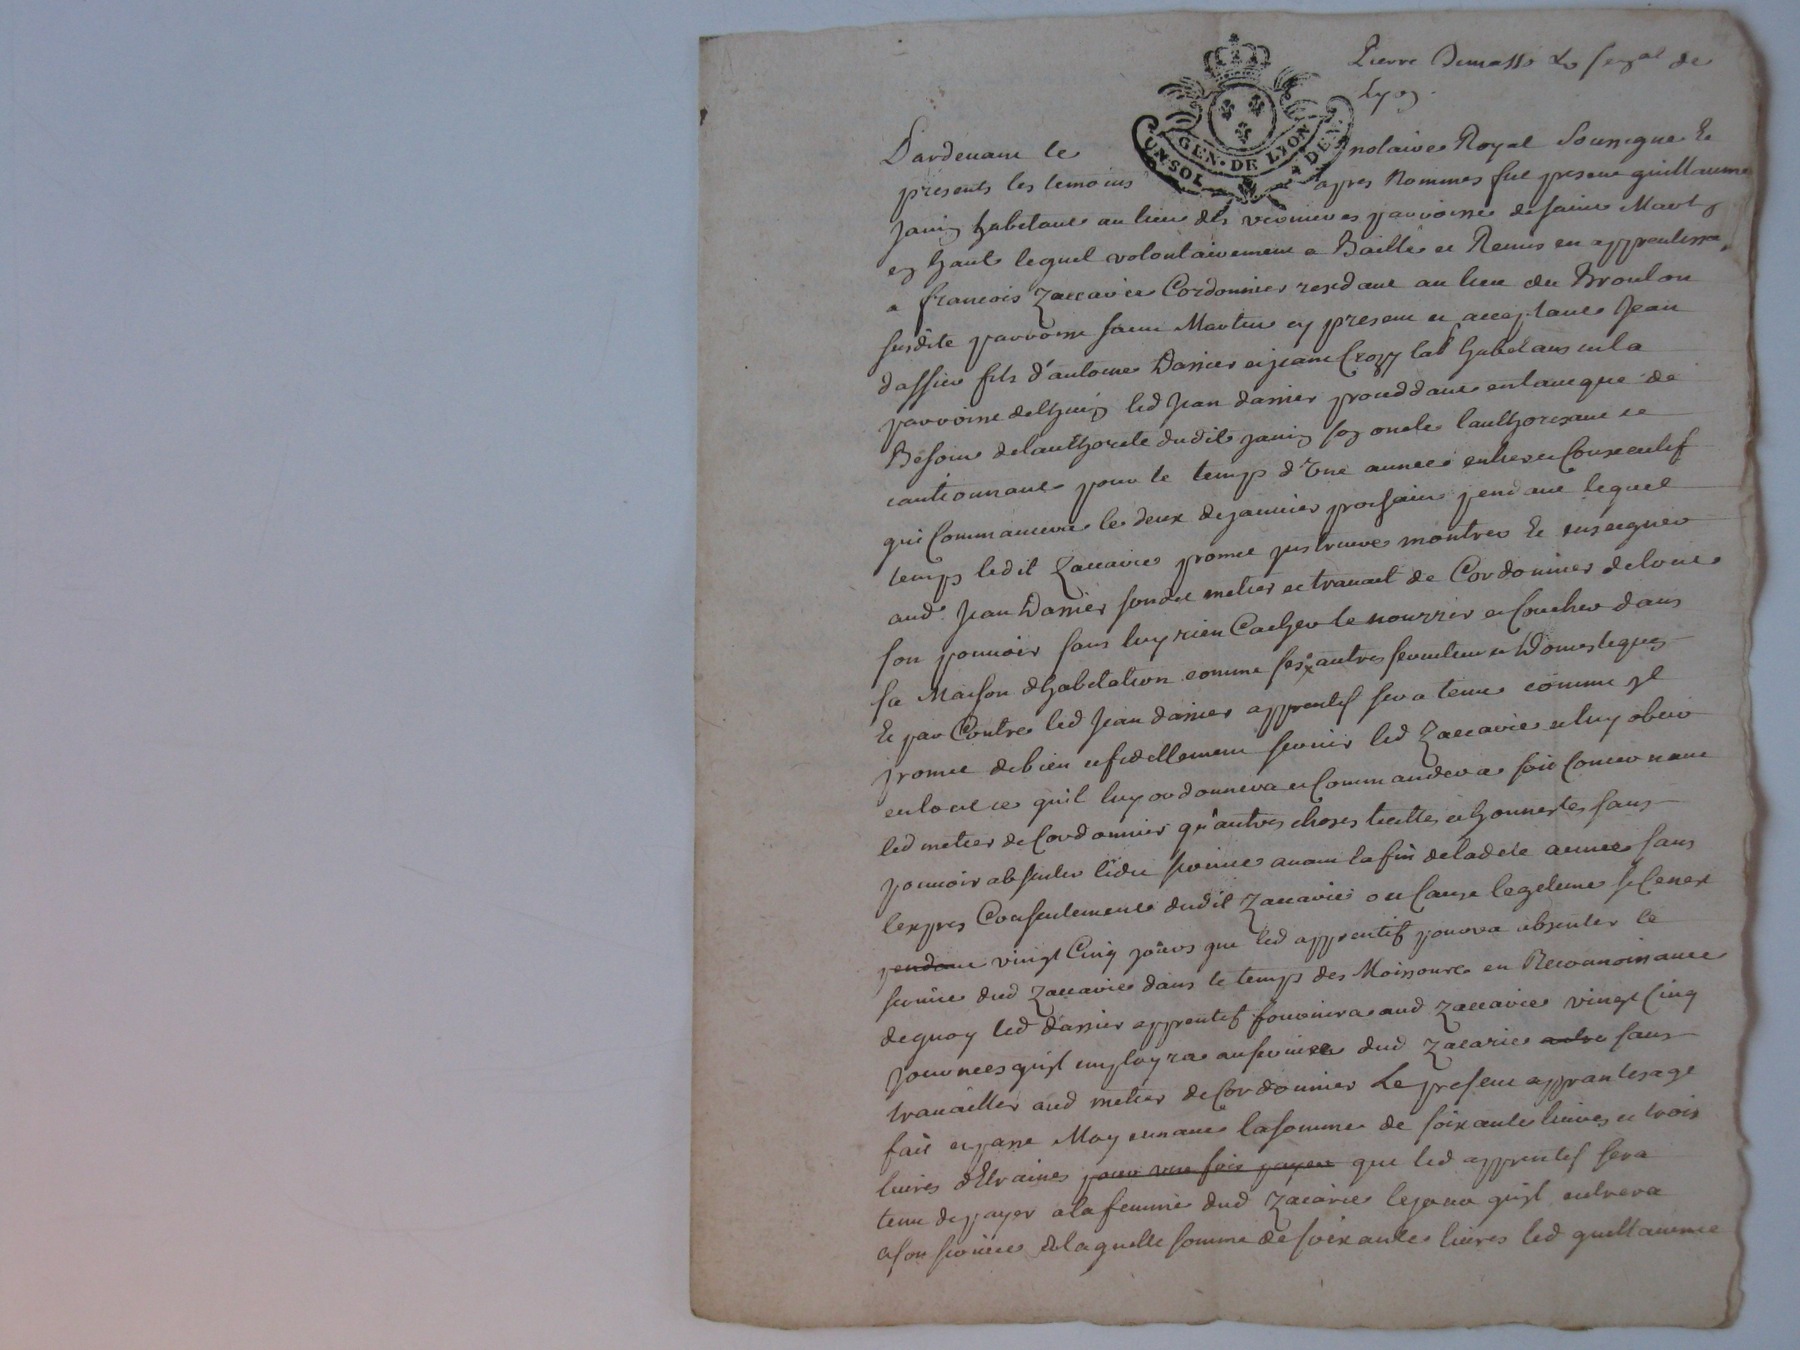 Pierre Dumas Le segal de
Lyon.
GEN. DE LYON
UN SOL 4 DEN.
Pardevant le notaire Royal Soussigne Et
presents les temoins apres Nommes fut present guillaume
Janin habitant au lieu des vernieres parroisse de saint Martin
en haut lequel volontairement a Baillé et Remis en apprentissage
a francois Zaccarie Cordonnier residant au lieu du Broulon
susdite parroisse saint Martin cy present et acceptant Jean
dassier fils d'antoine Dassier et jeane Crozy lab habitans en la
parroisse de led Jean dassier proceddant en tant que de
Besoin de lauthorité dudit janin son oncle lauthorisant et
cautionnant pour le temps d'Une année entiere et Consecutif
qui Commancera le deux de janvier prochain pendant lequel
temps ledit Zaccarie promet jnstruire montrer Et enseigner
aud. Jean Dassier sondit metier et travail de Cordonnier de tout
son pouvoir sans luy rien Cacher le nourrir et Coucher dans
sa Maison dhabitation comme ses autres serviteur et Domestiques
Et par Contre led Jean dassier apprentif sera tenu comme jl
promet de bien et fidellement servir led Zaccarie et luy obeir
en tout ce quil luy ordonnera et Commandera soit Concernant
led metier de Cordonnier qu'autres choses licittes et honnestes sans
pouvoir absenter sondit service avant la fin de ladite année sans
lexpres Consentement dudit Zaccarie ou Cause legitime si ce nest
pendant vingt Cinq jours que led apprentif pourra absenter le
service dud Zaccarie dans le temps des Moissons en Reconnoissance
de quoy led dassier apprentif fournira aud Zaccarie vingt Cinq
journees qu'jl employra au service dud Zacarie sans
travailler aud metier de Cordonnier Le present apprantisage
fait et passé Moyennant la somme de soixante livres et trois
livres d'Etraines pour une fois payer que led apprentif sera
tenu de payer a la femme dud Zacarie le jour qu'jl entrera
a son service de laquelle somme de soixante livres led guillaume